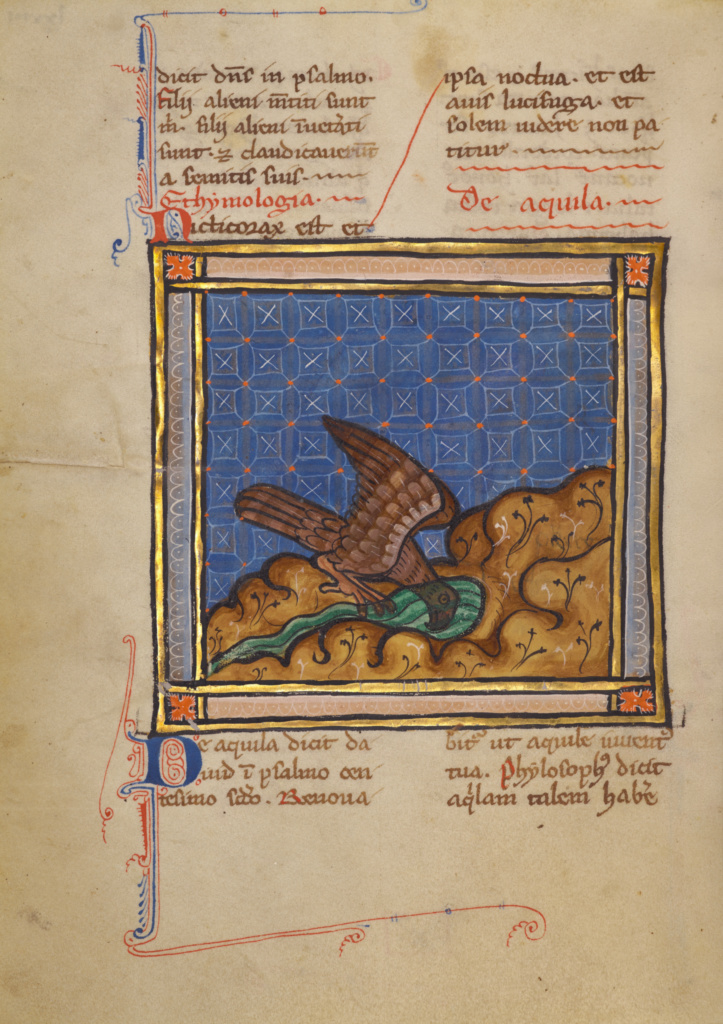 dicit dns in psalmo.
filij alieni mtiti sunt
m. filij alieni inuetati
sunt. ⁊ claudicauerunt
a semitis suis.
Ethymologia.
Nicticorax est et
ipsa noctua. et est
auis lucifuga. et
solem uidere non pa
titur.
De aquila.
De aquila dicit da
uid i psalmo cen
tesimo scdo. Renoua
bit ut aquile iuuent
tua. Phylosoph dicit
aqlam talem habe